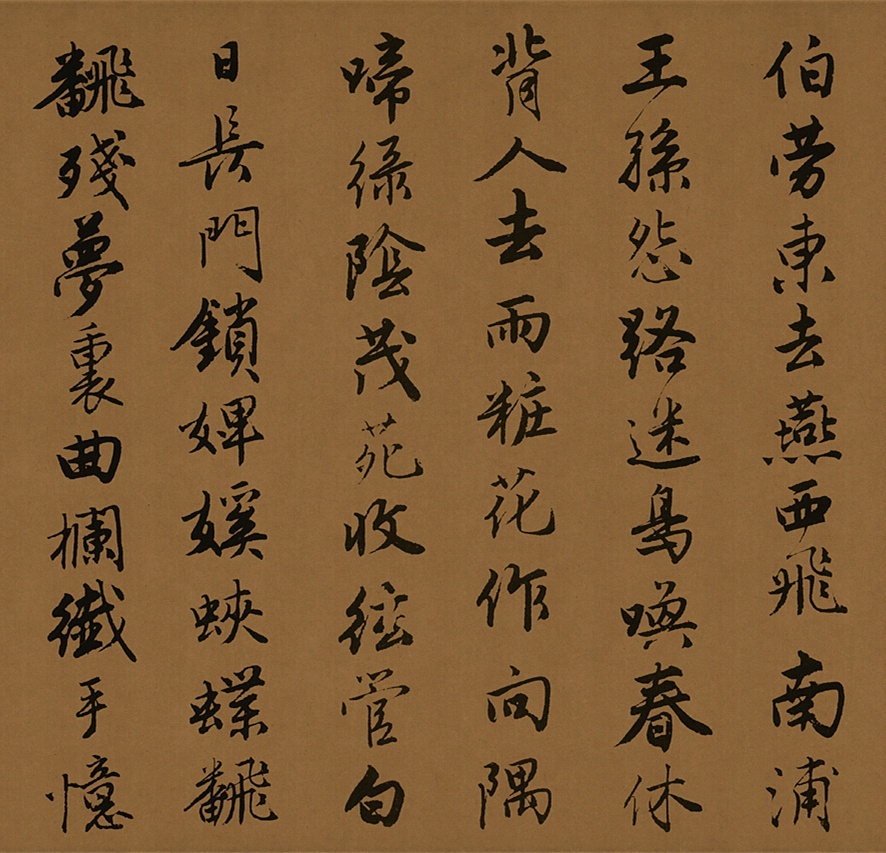 伯勞東去燕西飛南浦
王孫怨路迷鳥喚春休
背人去雨粧花作向隅
啼綠陰茂苑收絃管白
日長門鎖婢媛蛺蝶翻
翻殘夢裏曲欄纖手憶